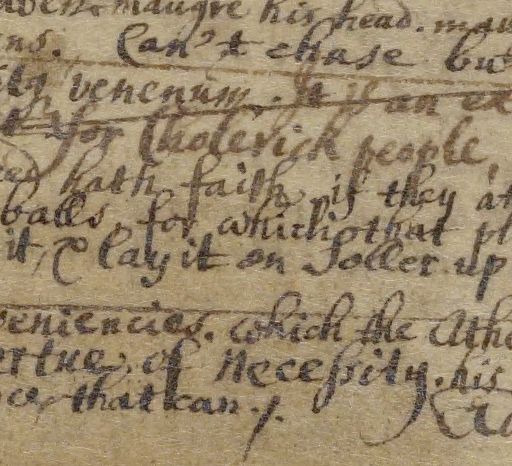 maugre his head. mau
ins. Can't chase bu
venenum. It is an ex
for Cholerick people,
hath faith, if they at
balls, for which that pl
it, & lay it on Soller up
veniencies. which the Athe
ertue of Necessity. his
that can.